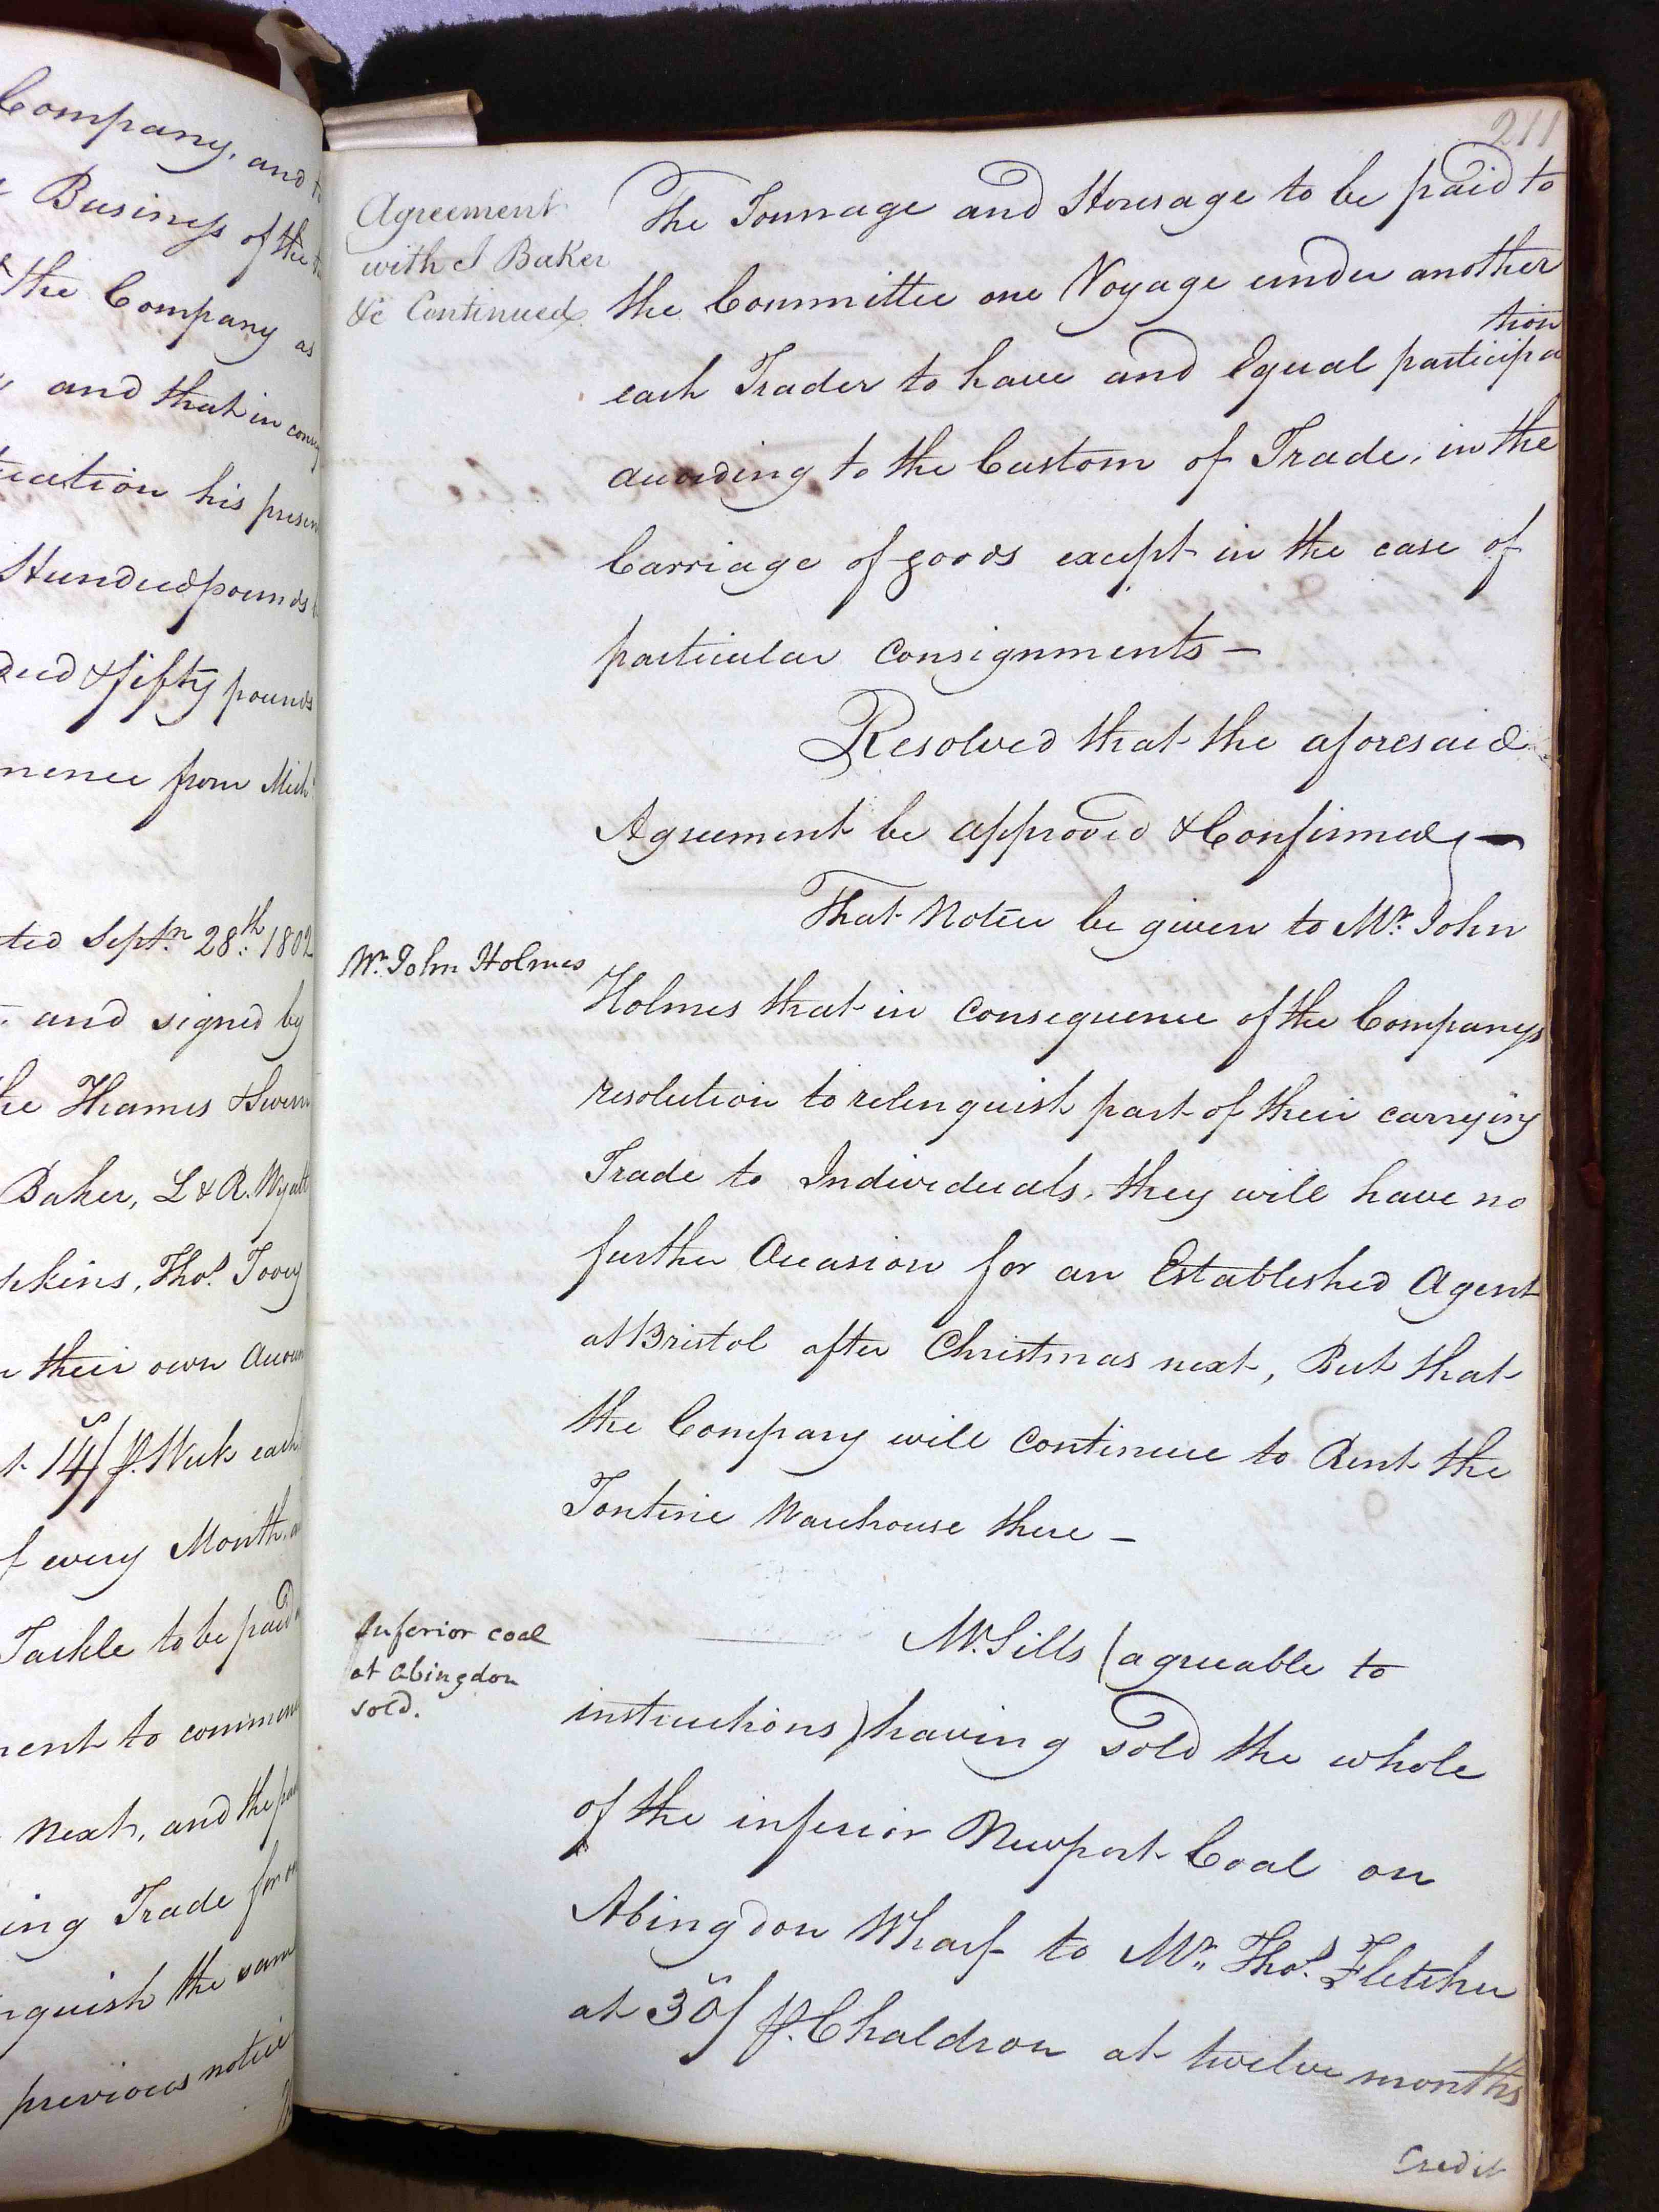 Company, and
Business of the
the Company as
and that in
his
Hundred pounds
& fifty pounds
from Mich
Septr. 28th: 1802
and signed by
Thames & Severn
Baker, L & R. Wyatt
Thos. Tovey
their own
14/ p. Week each
of every Month
Tackle to be paid
to
Next, and the
Trade for
the same
previous notice
211
Agreement
with J Baker
&c Continued
The Tonnage and Housage to be paid to
the Committee one Voyage under another
each Trader to have and Equal participa
tion
according to the Custom of Trade, in the
Carriage of goods except in the case of
particular Consignments —
Resolved that the aforesaid
Agreement be approved & Confirmed, —
Mr. John Holmes
That Notice be given to Mr. John
Holmes that in Consequence of the Companys
resolution to relinquish part of their carrying
Trade to Individuals, they will have no
further Occasion for an Established Agent
at Bristol after Christmas next, But that
the Company will Continue to Rent the
Tontine Warehouse there —
Inferior coal
at Abingdon
sold.
Mr. Sills (agreeable to
instructions) having sold the whole
of the inferior Newport Coal on
Abingdon Wharf to Mr. Thos. Fletcher
at 30/ p. Chaldron at twelve months
Credit